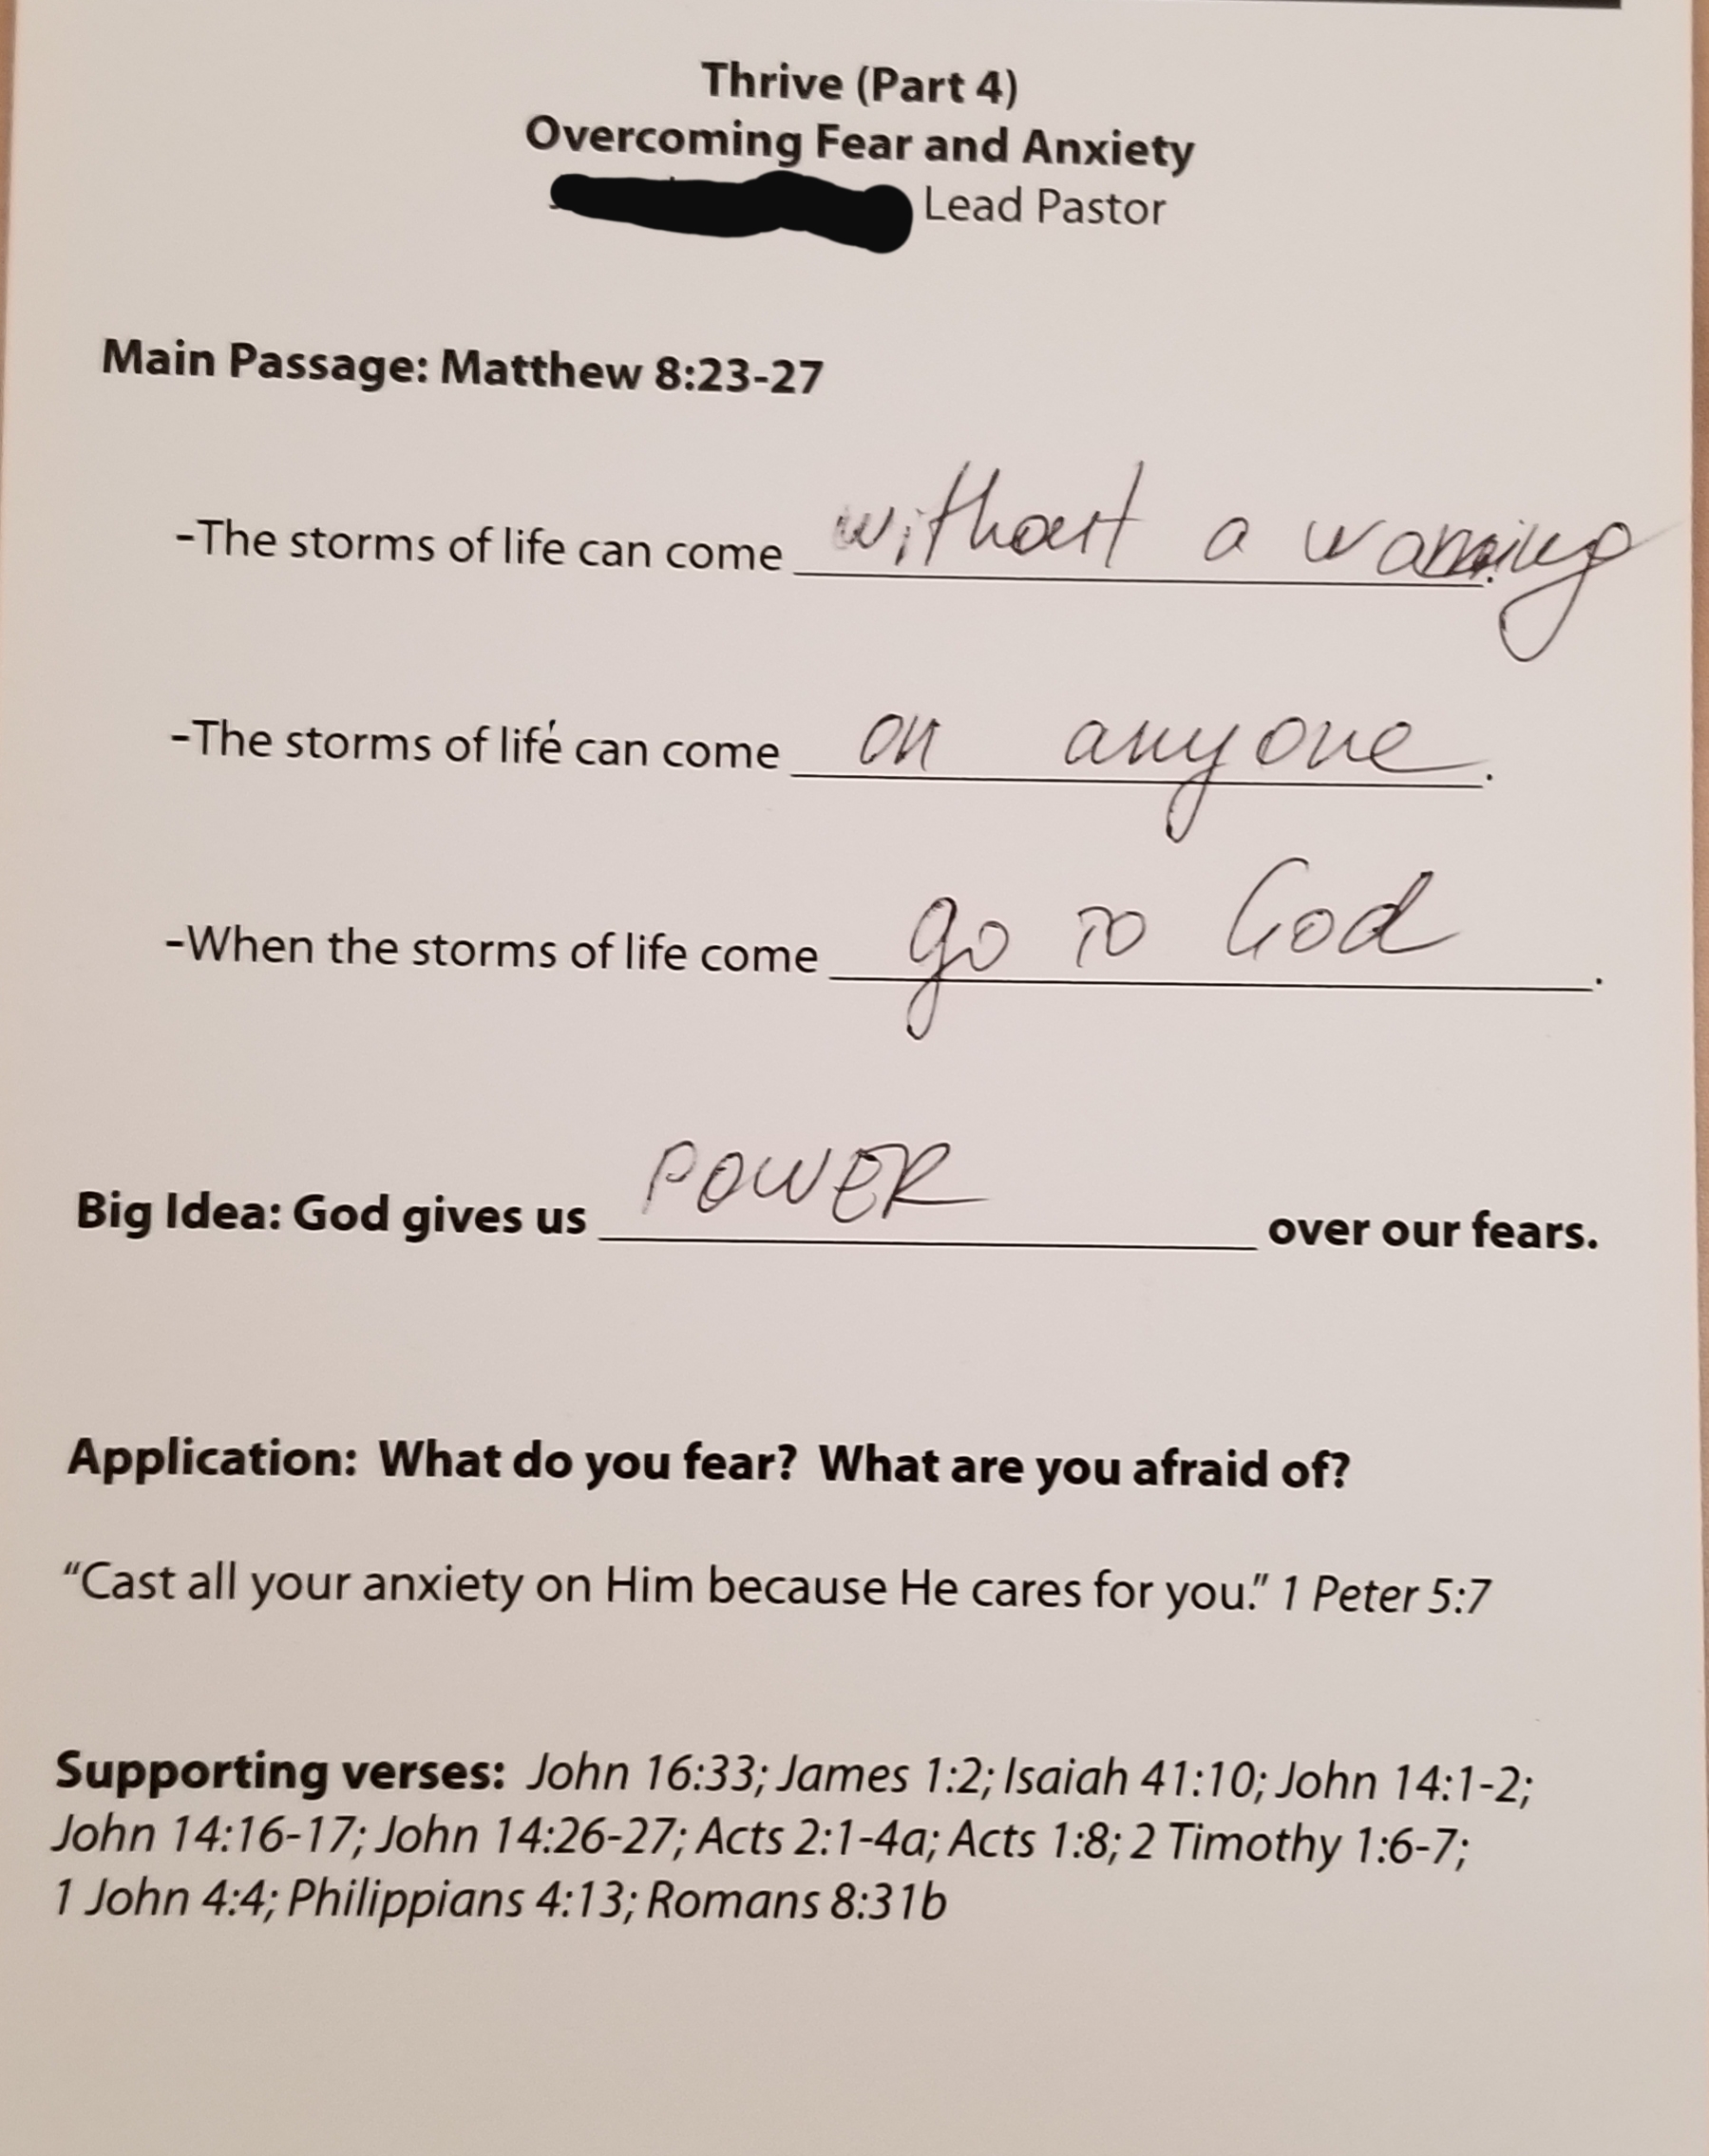 Thrive (Part 4)
Overcoming Fear and Anxiety
Lead Pastor
Main Passage: Matthew 8:23-27
-The storms of life can come without a warning.
-The storms of life can come on anyone.
-When the storms of life come go to God.
Big Idea: God gives us POWER over our fears.
Application: What do you fear? What are you afraid of?
“Cast all your anxiety on Him because He cares for you.” 1 Peter 5:7
Supporting verses: John 16:33; James 1:2; Isaiah 41:10; John 14:1-2;
John 14:16-17; John 14:26-27; Acts 2:1-4a; Acts 1:8; 2 Timothy 1:6-7;
1 John 4:4; Philippians 4:13; Romans 8:31b